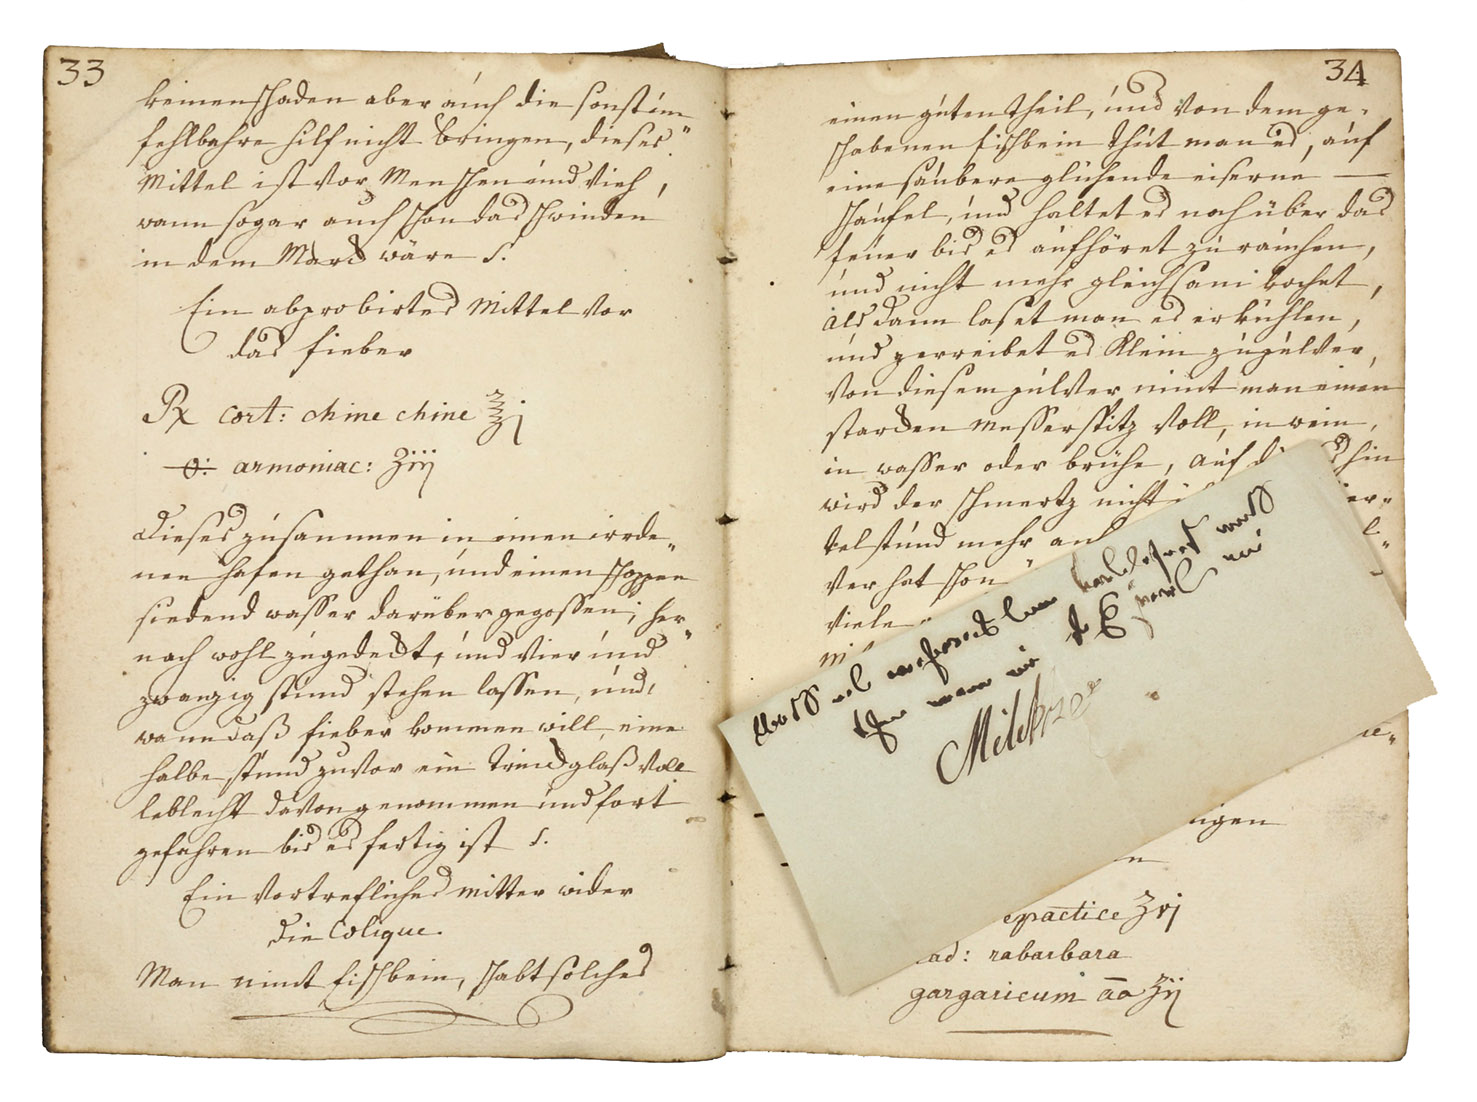 33
keinen schaden aber auch die sonst im
fehlbahre hilf nicht bringen, dieses
Mittel ist vor Menschen und Vieh,
wann sogar auch schon das schwinden
in dem Marck wäre S.
Ein abprobirtes Mittel vor
das fieber
Rx cort: chine chine ℥j
armoniac: ʒiij
Dieses zusammen in einen irrde„
nen hafen gethan, und einen schoppen
siedend wasser darüber gegossen, her„
nach wohl zugedeckt, und vier und
zwanzig stund stehen lassen, und,
wann daß fieber kommen will, eine
halbe stund zuvor ein Trinckglaß voll
leblecht davon genommen und fort
gefahren bis es fertig ist S.
Ein Vortrefliches mitter wider
die Colique.
Man nimt fischbein, schabt solches
34
einen guten theil, und von dem ge„
schabenen fischbein thut man es, auf
eine saubere glühende eiserne —
schaufel, und haltet es noch über das
feuer bis es aufhöret zu rauchen,
und nicht mehr gleichsam kochet,
als dann laset man es erkühlen,
und zerreibet es klein zu pulver,
von diesem pulver nimt man einen
starcken messerspitz voll, in wein,
in wasser oder brühe, auf hin
wird der schmertz nicht ier„
telstund mehr an
ver hat schon
viele
Milch
ngen
epactice ʒvj
ad: rabarbara
gargaricum āa ʒij